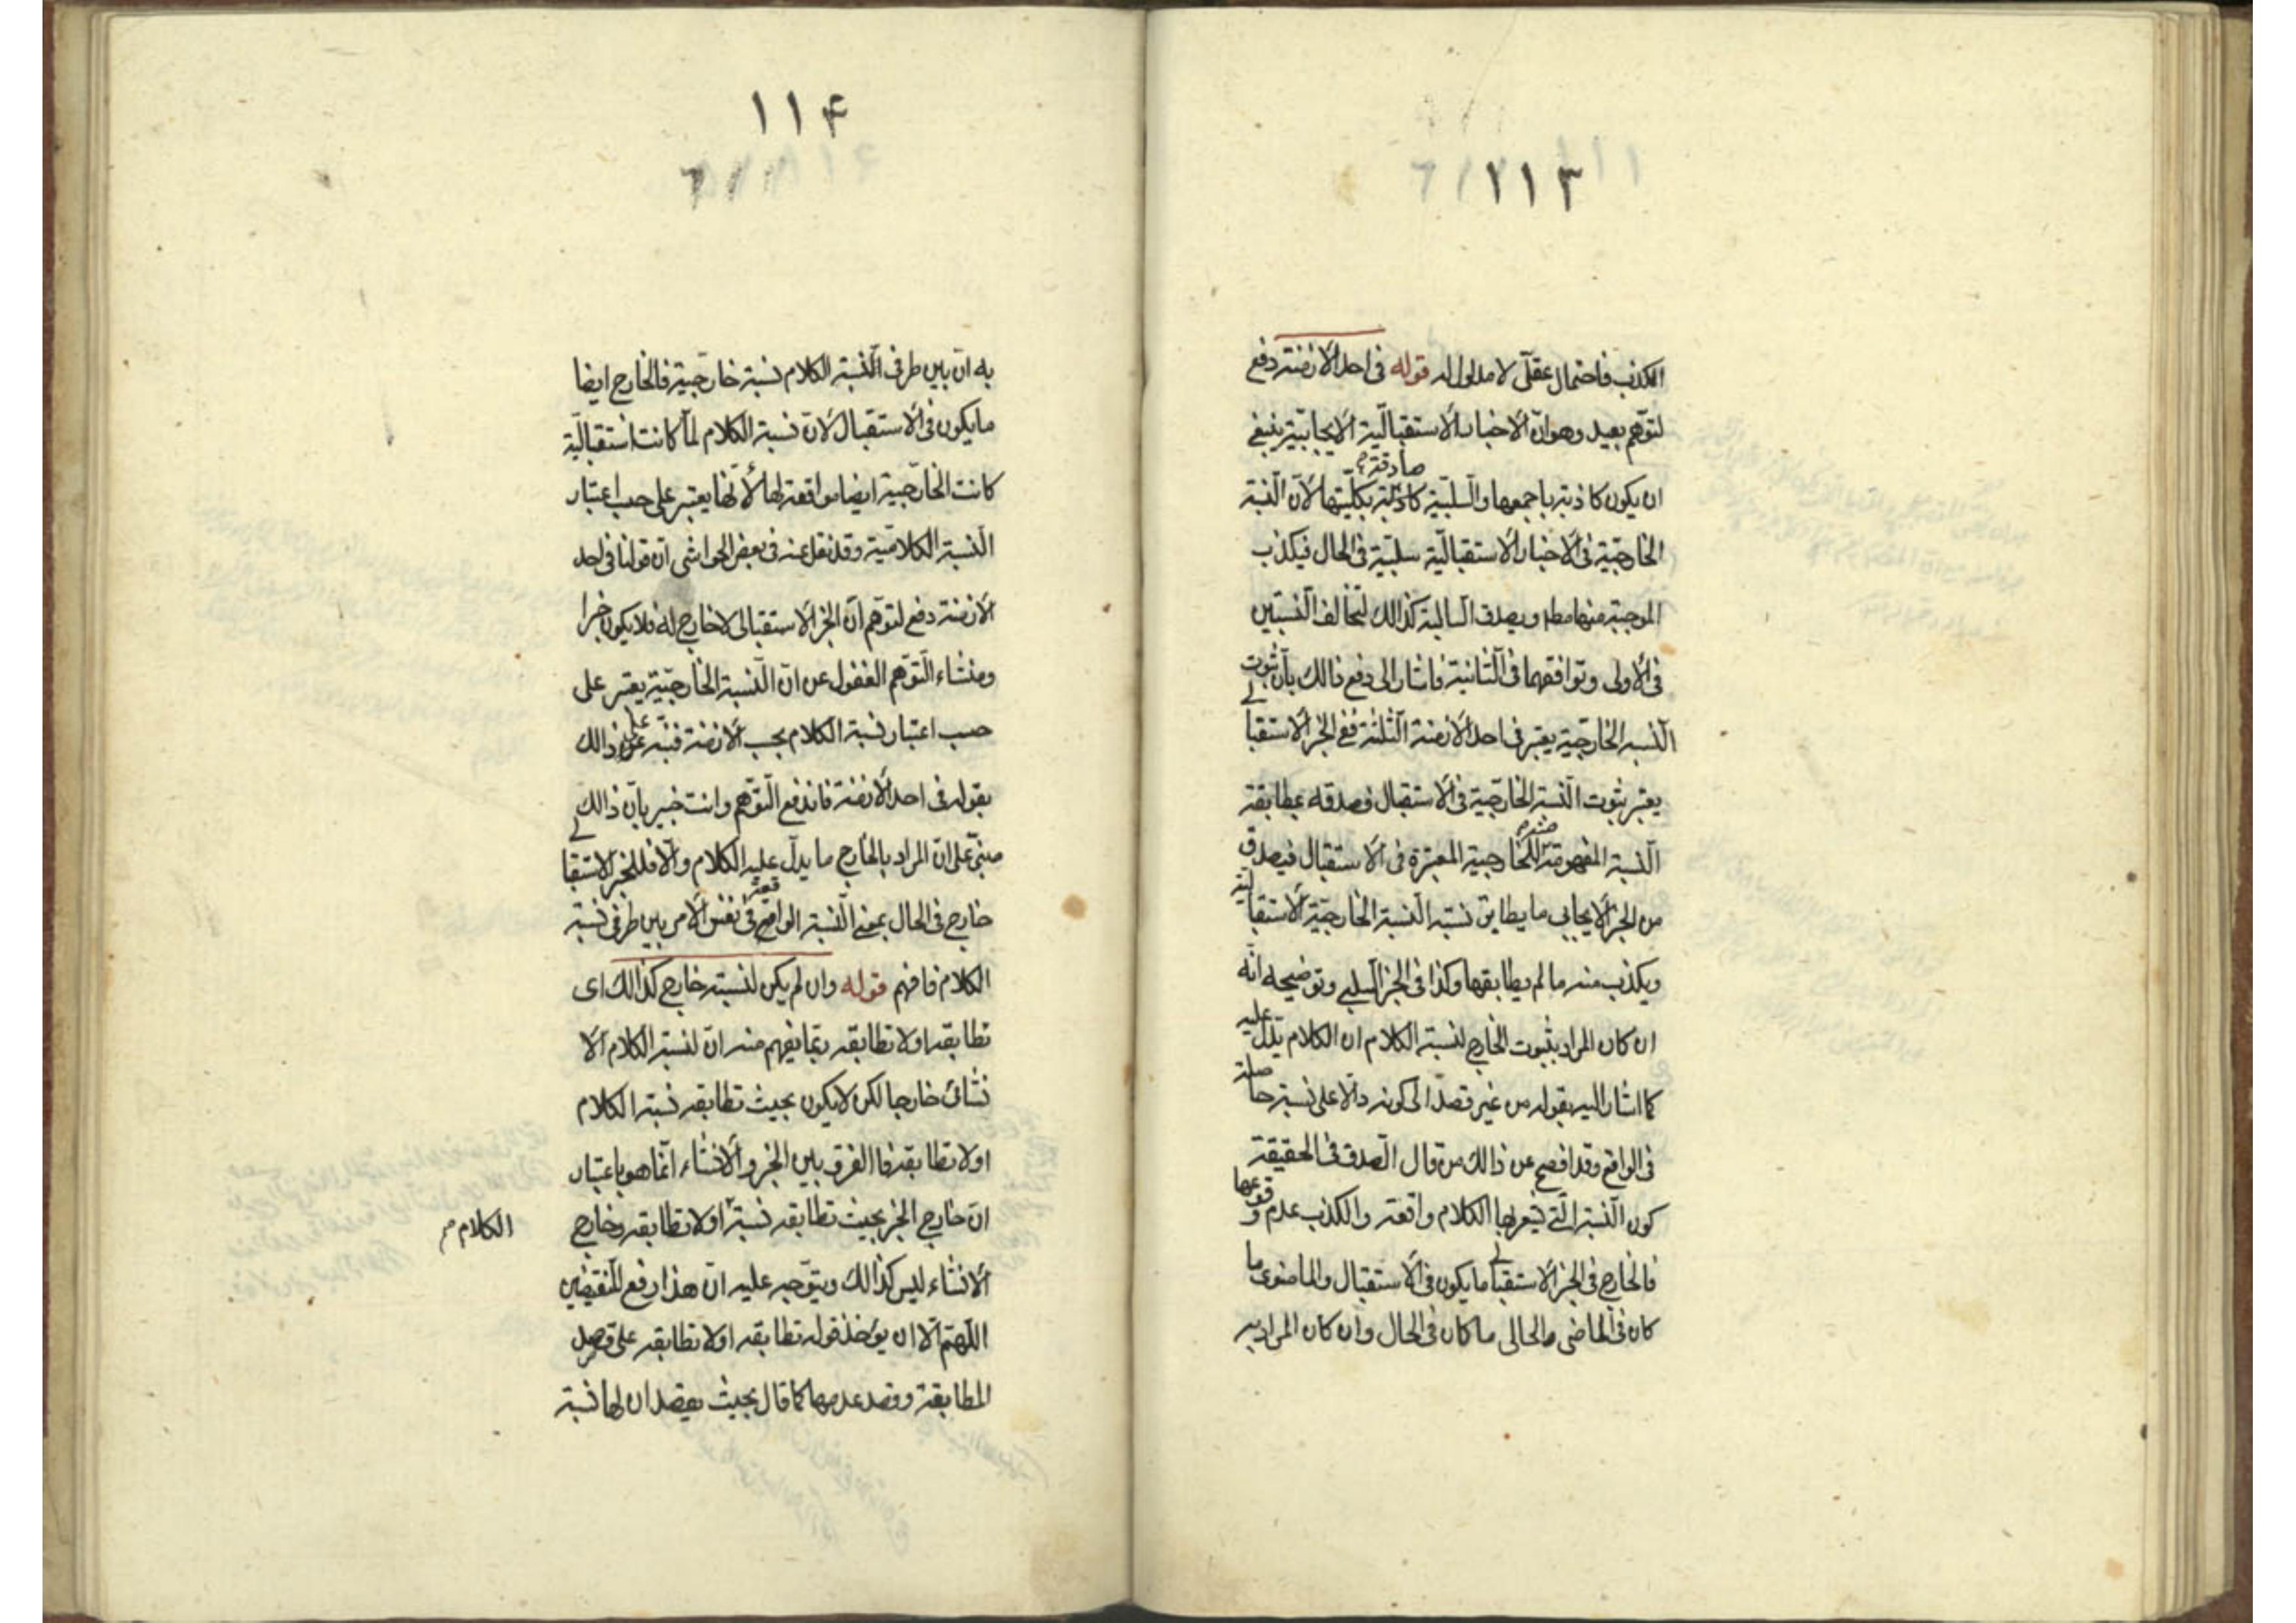 ١١٣
الكذب فاحتمال عقلّى لا مدلول له قوله فى احد الازمنة دفع
لتوّهم بعيد وهو انّ الاخبار الاستقباليّة الايجابيّة ينبغى
ان يكون كاذبة باجمعها والسّلبيّة صادقة بكليّتها لانّ النّسبة
الخارجيّة فى الاخبار الاستقباليّة سلبيّة فى الحال فيكذب
الموجبة منها مطلقا ويصدق السالبة كذالك لتخالف النّسبتين
فى الاولى وتوافقهما فى الثانية فاشار الى دفع ذالك بأن ثبوت
النّسبة الخارجيّة يعتبر فى احد الازمنة الثّلثة ففى الخبر الاستقبالى
يعتبر بثبوت النّسبة الخارجيّة فى الاستقبال فصدقه بمطابقة
النّسبة المفهومة منه للخارجية المعتبرة فى الاستقبال فيصدق
من الخبر الايجابى ما يطابق نسبته النّسبة الخارجيّة الاستقبالية
ويكذب منه ما لم يطابقها وكذا فى الخبر السّلبى وتوضيحه انّه
ان كان المراد بثبوت الخارج لنسبة الكلام ان الكلام يدلّ عليه
كما اشار اليه بقوله من غير قصد الى كونه دالّا على نسبة حاصلة
فى الواقع وقد افصح عن ذالك من قال الصّدق فى الحقيقة
كون النّسبة الّتى يشعر بها الكلام واقعة والكذب عدم وقوعها
فالخارج فى الخبر الاستقبالى ما يكون فى الاستقبال والماضوى ما
كان فى الماضى والحالى ما كان فى الحال وان كان المراد به
١١۴
به انّ بين طرفى النّسبة الكلام نسبة خارجيّة فالخارج ايضا
ما يكون فى الاستقبال لانّ نسبة الكلام لمّا كانت استقباليّة
كانت الخارجيّة ايضا موافقة لها لأنّها يعتبر على حسب اعتبار
النّسبة الكلاميّة وقد نقل عنه فى بعض الحواشى انّ قولنا فى احد
الازمنة دفع لتوّهم انّ الخبر الاستقبالى لا خارج له فلا يكون خبرا
ومنشاء التّوهم الغفول عن انّ النّسبة الخارجيّة يعتبر على
حسب اعتبار نسبة الكلام بحسب الازمنة فنبّه على ذالك
بقوله فى احد الازمنة فاندفع التّوهم وانت خبير بأنّ ذالك
مبنىّ على انّ المراد بالخارج ما يدلّ عليه الكلام والّا فللخبر الاستقبالى
خارج فى الحال بمعنى النّسبة الواقعة فى نفس الامر بين طرفى نسبة
الكلام فافهم قوله وان لم يكن لنسبته خارج كذالك اى
تطابقه او لا تطابقه ربّما يفهم منه انّ لنسبة الكلام الا
نشائى خارجا لكن لا يكون بحيث تطابقه نسبة الكلام
او لا تطابقه فالفرق بين الخبر والانشاء انّما هو باعتبار
انّ خارج الخبر بحيث تطابقه نسبة الكلام او لا تطابقه وخارج
الانشاء ليس كذالك ويتوّجه عليه انّ هذا رفع للنّقيضين
اللّهمّ الّا ان يؤخذ قوله تطابقه او لا تطابقه على قصد
المطابقة وقصد عدمها كما قال بحيث يقصد ان لها نسبة